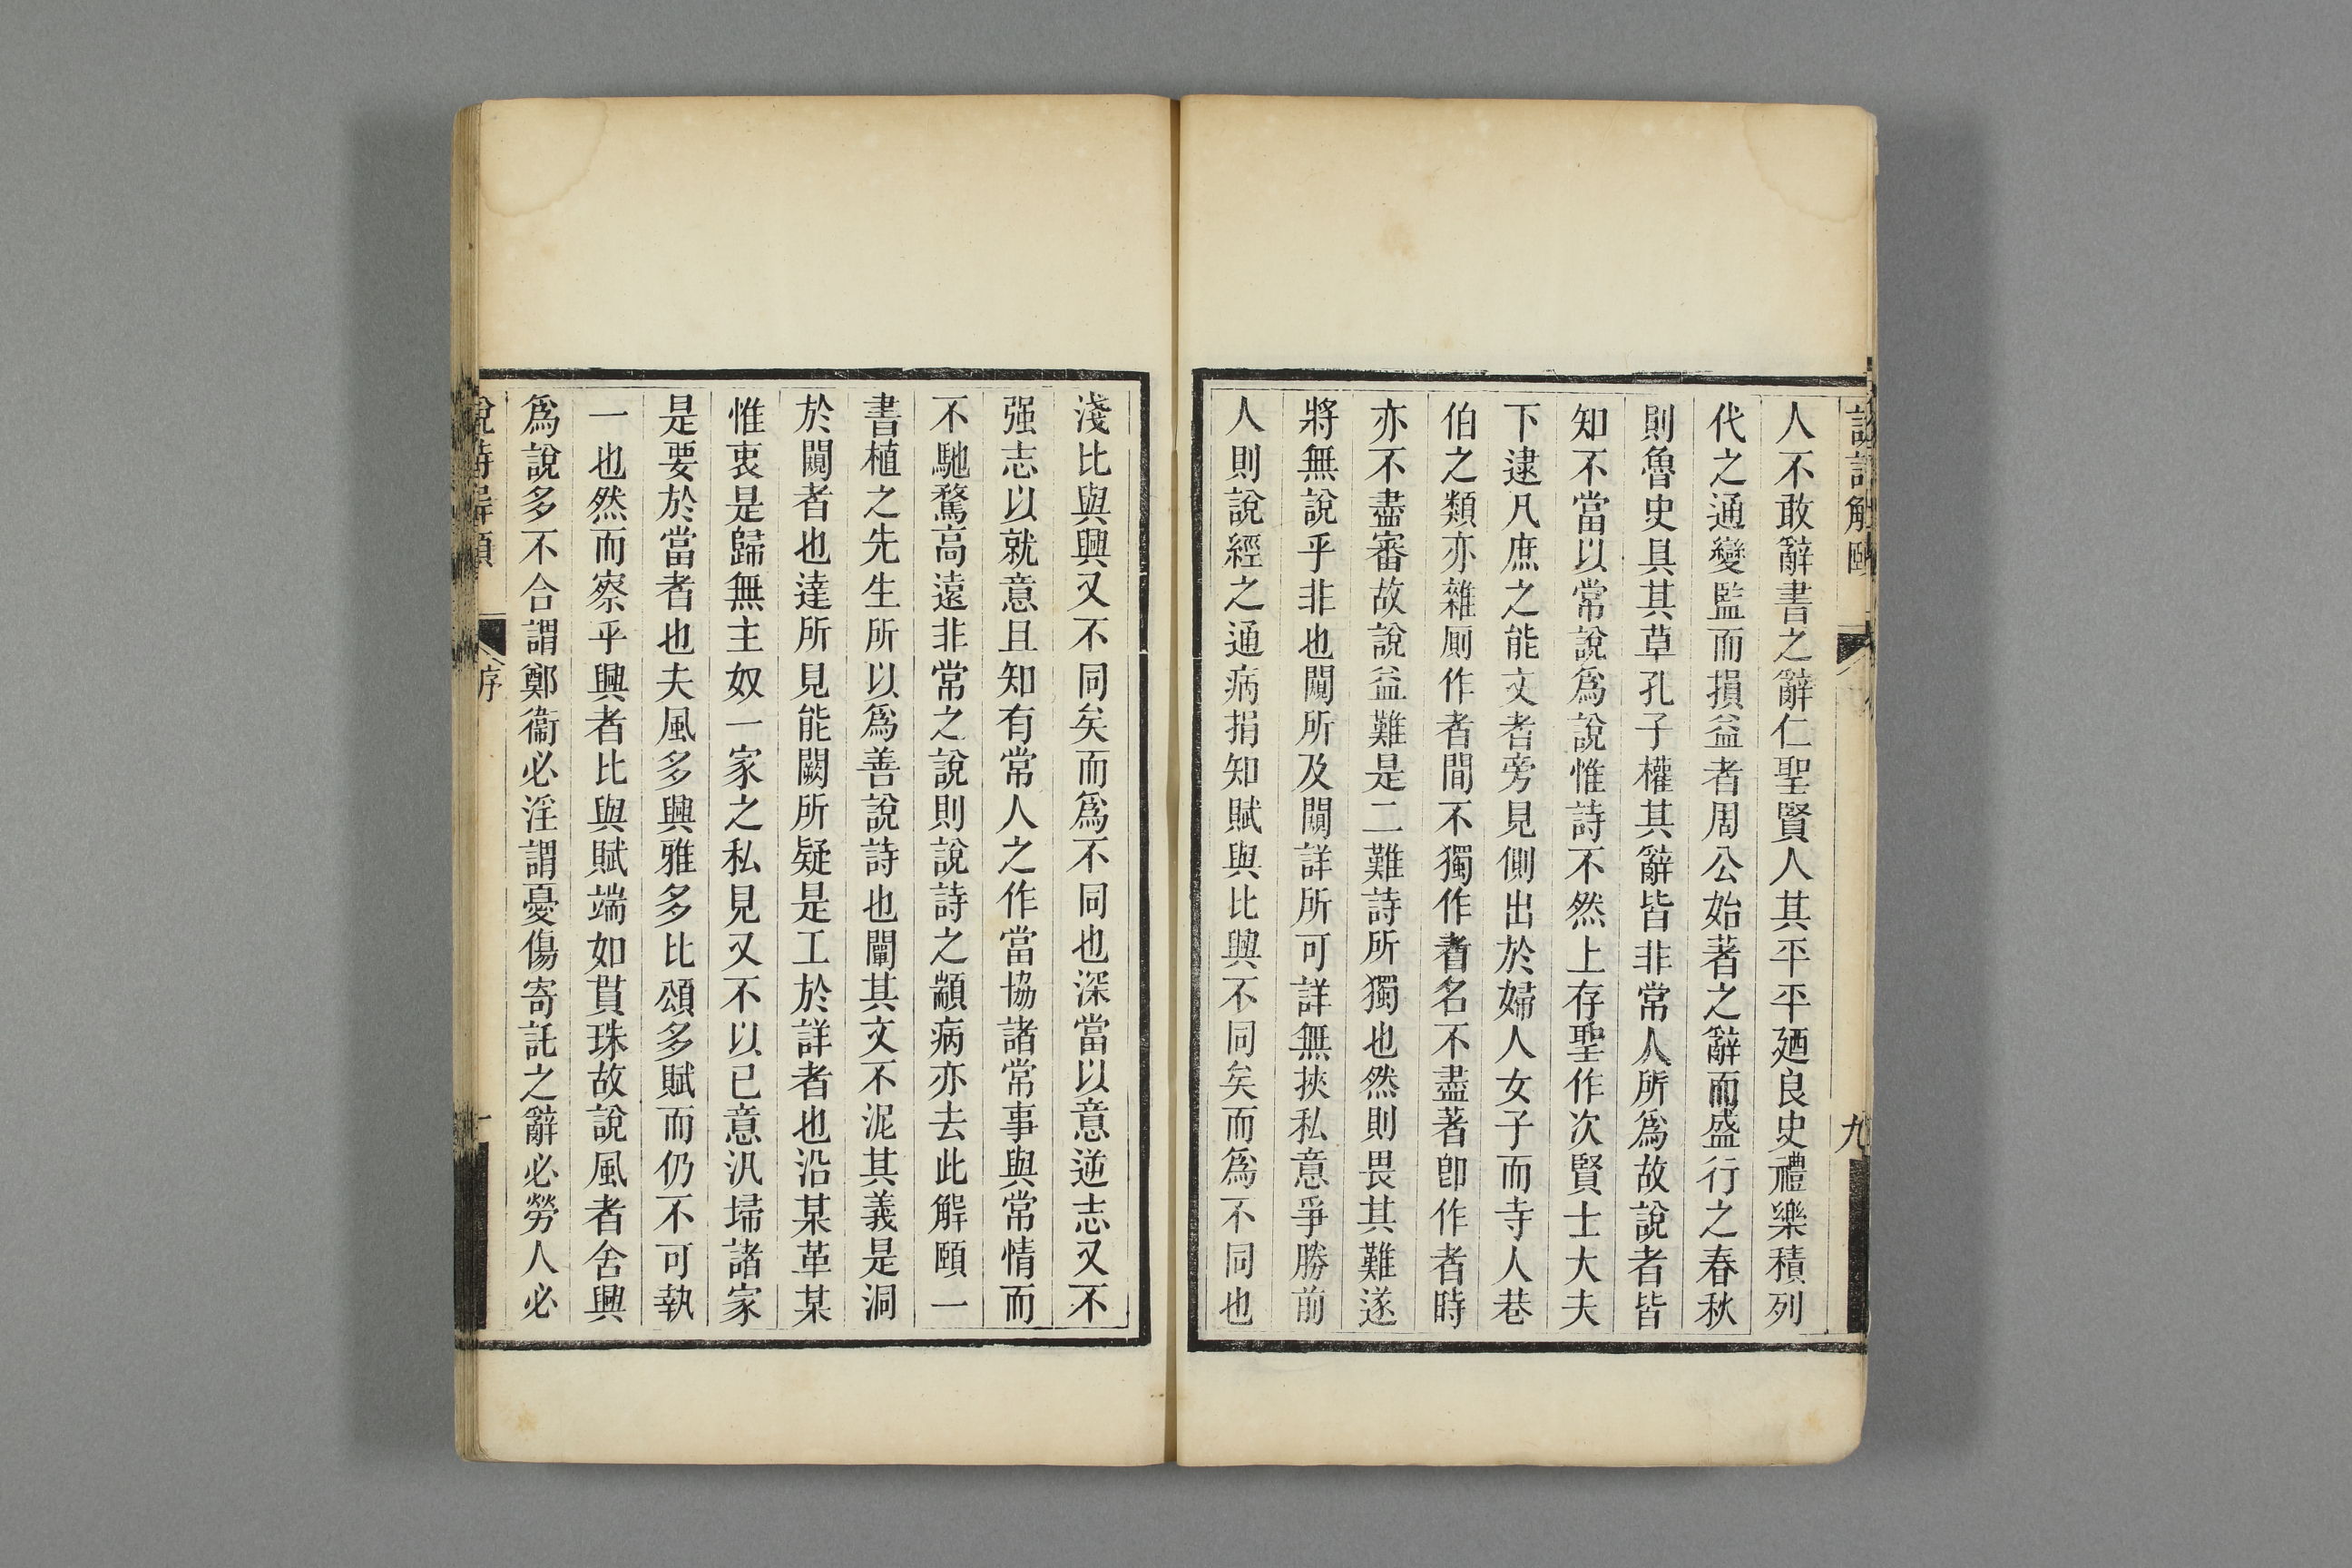 人不敢辭書之辭仁聖賢人其平平廼良史禮樂積列
代之通變監而損益者周公始著之辭而盛行之春秋
則魯史具其草孔子權其辭皆非常人所爲故說者皆
知不當以常說爲說惟詩不然上存聖作次賢士大夫
下逮凡庶之能文者旁見側出於婦人女子而寺人巷
伯之類亦雜厠作者間不獨作者名不盡著卽作者時
亦不盡審故說益難是二難詩所獨也然則畏其難遂
將無說乎非也闡所及闡詳所可詳無挾私意爭勝前
人則說經之通病捐知賦與比興不同矣而爲不同也
淺比與興又不同矣而爲不同也深當以意逆志又不
强志以就意且知有常人之作當協諸常事與常情而
不馳騖高遠非常之說則說詩之顓病亦去此解頤一
書植之先生所以爲善說詩也闡其文不泥其義是洞
於闡者也達所見能闕所疑是工於詳者也沿某革某
惟衷是歸無主奴一家之私見又不以已意汎埽諸家
是要於當者也夫風多興雅多比頌多賦而仍不可執
一也然而察乎興者比與賦端如貫珠故說風者舍興
爲說多不合謂鄭衞必淫謂憂傷寄託之辭必勞人必
說詩解頤
序